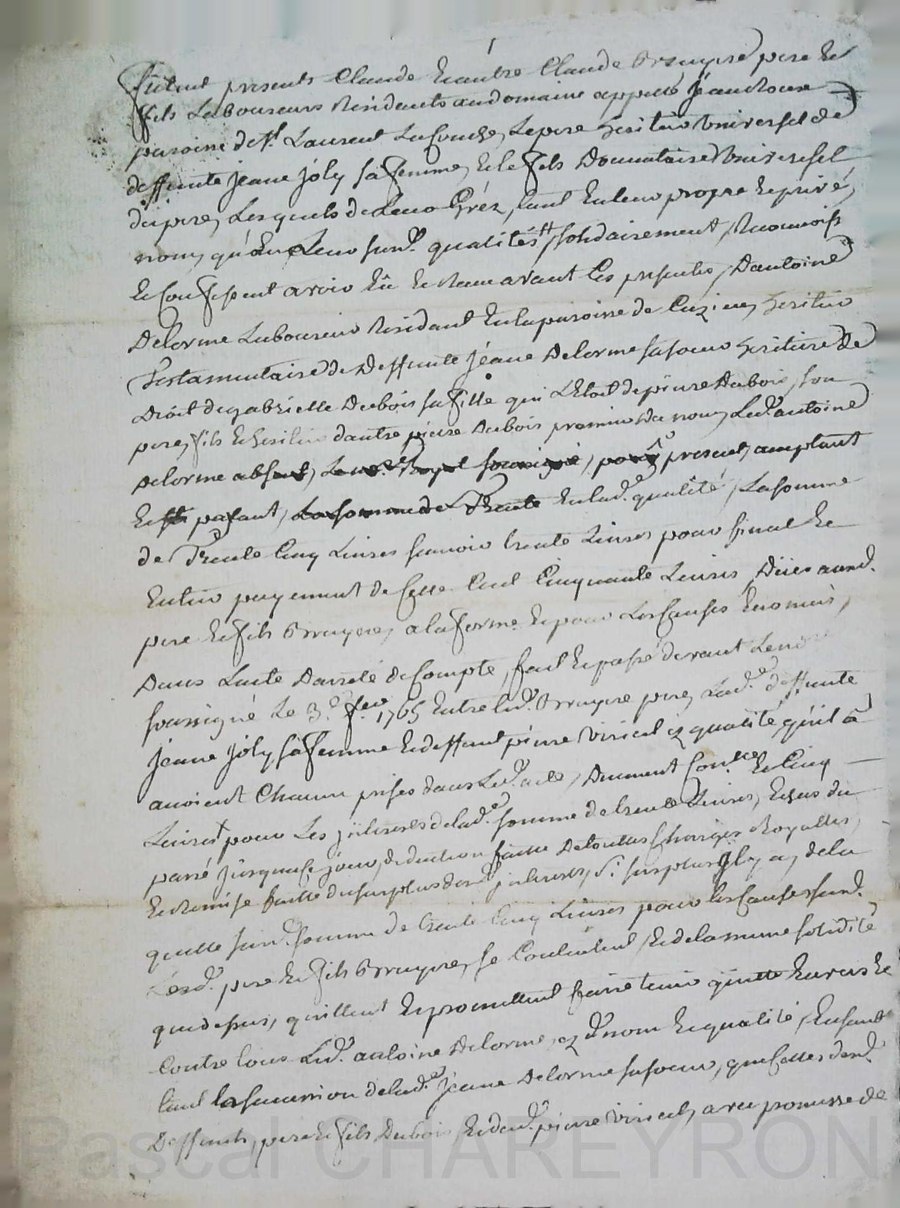 furent presents Claude Et autre Claude Bruyere pere Et
fils Laboureurs Residents au domaine appellé Jeanroux
paroine de St Laurent La Conche, Le pere heritier Universel de
deffunte Jeane Joly sa femme, Et le fils Donnataire Universel
du pere, Lesquels de Leur Gréz, tant En leur propre Et privé
nom, qu'En Leur susd. qualités solidairement, Reconnoiss
Et Confessent avoir Eû Et Receu avant Ces presentes, D'antoine
Delorme Laboureur Residant En la paroine de Cuzieu, heritier
Testamentaire de Deffunte Jeane Delorme sa soeur heritiere de
Droit de gabrielle Dubois sa fille qui L'Etoit de pierre Dubois, son
pere, fils Et heritier d'autre pierre Dubois premier du nom, Led. antoine
Delorme present, acceptant
Et La somme de Trente En lad. qualité, La somme
de Trente Cinq Livres sçavoir trente Livres pour final Et
Entier payement de Celle Cent Cinquante Livres, Düe auxd.
pere Et fils Bruyere, a la forme Et pour Les Causes Enoncées,
Dans L'acte D'arreté de Compte, fait Et passé devant Le
soussigné Le 3.e 1765 Entre led. Bruyere pere, Lad. deffunte
Jeane Joly sa femme Et deffunt pierre Viricel Ez qualité qu'il
avoient Chacun prises dans Led. acte, Dument Et Cinq
Livres pour Les jnterest de lad. somme de trente Livres, Echus du
passé jusqu'a Ce jour, deduction faitte De touttes Charges Royalles,
Et Remise faitte du surplus desd jnterest, si surplus jl y a, de la
quelle susd. somme de trente Cinq Livres pour les Causes susd.
Lesd. pere Et fils Bruyere, se Contentent, Et de la meme solidité
que dessus, quittent Et promettent faire tenir quitte Envers Et
Contre tous Led. antoine Delorme, Ez d. nom Et qualité, Ensemble
tant la succession de lad. Jeane Delorme sa soeur, que Celles desd.
Deffunts, pere Et fils Dubois, Et dud. pierre Viricel, avec promesse de
Pascal CHAREYRON